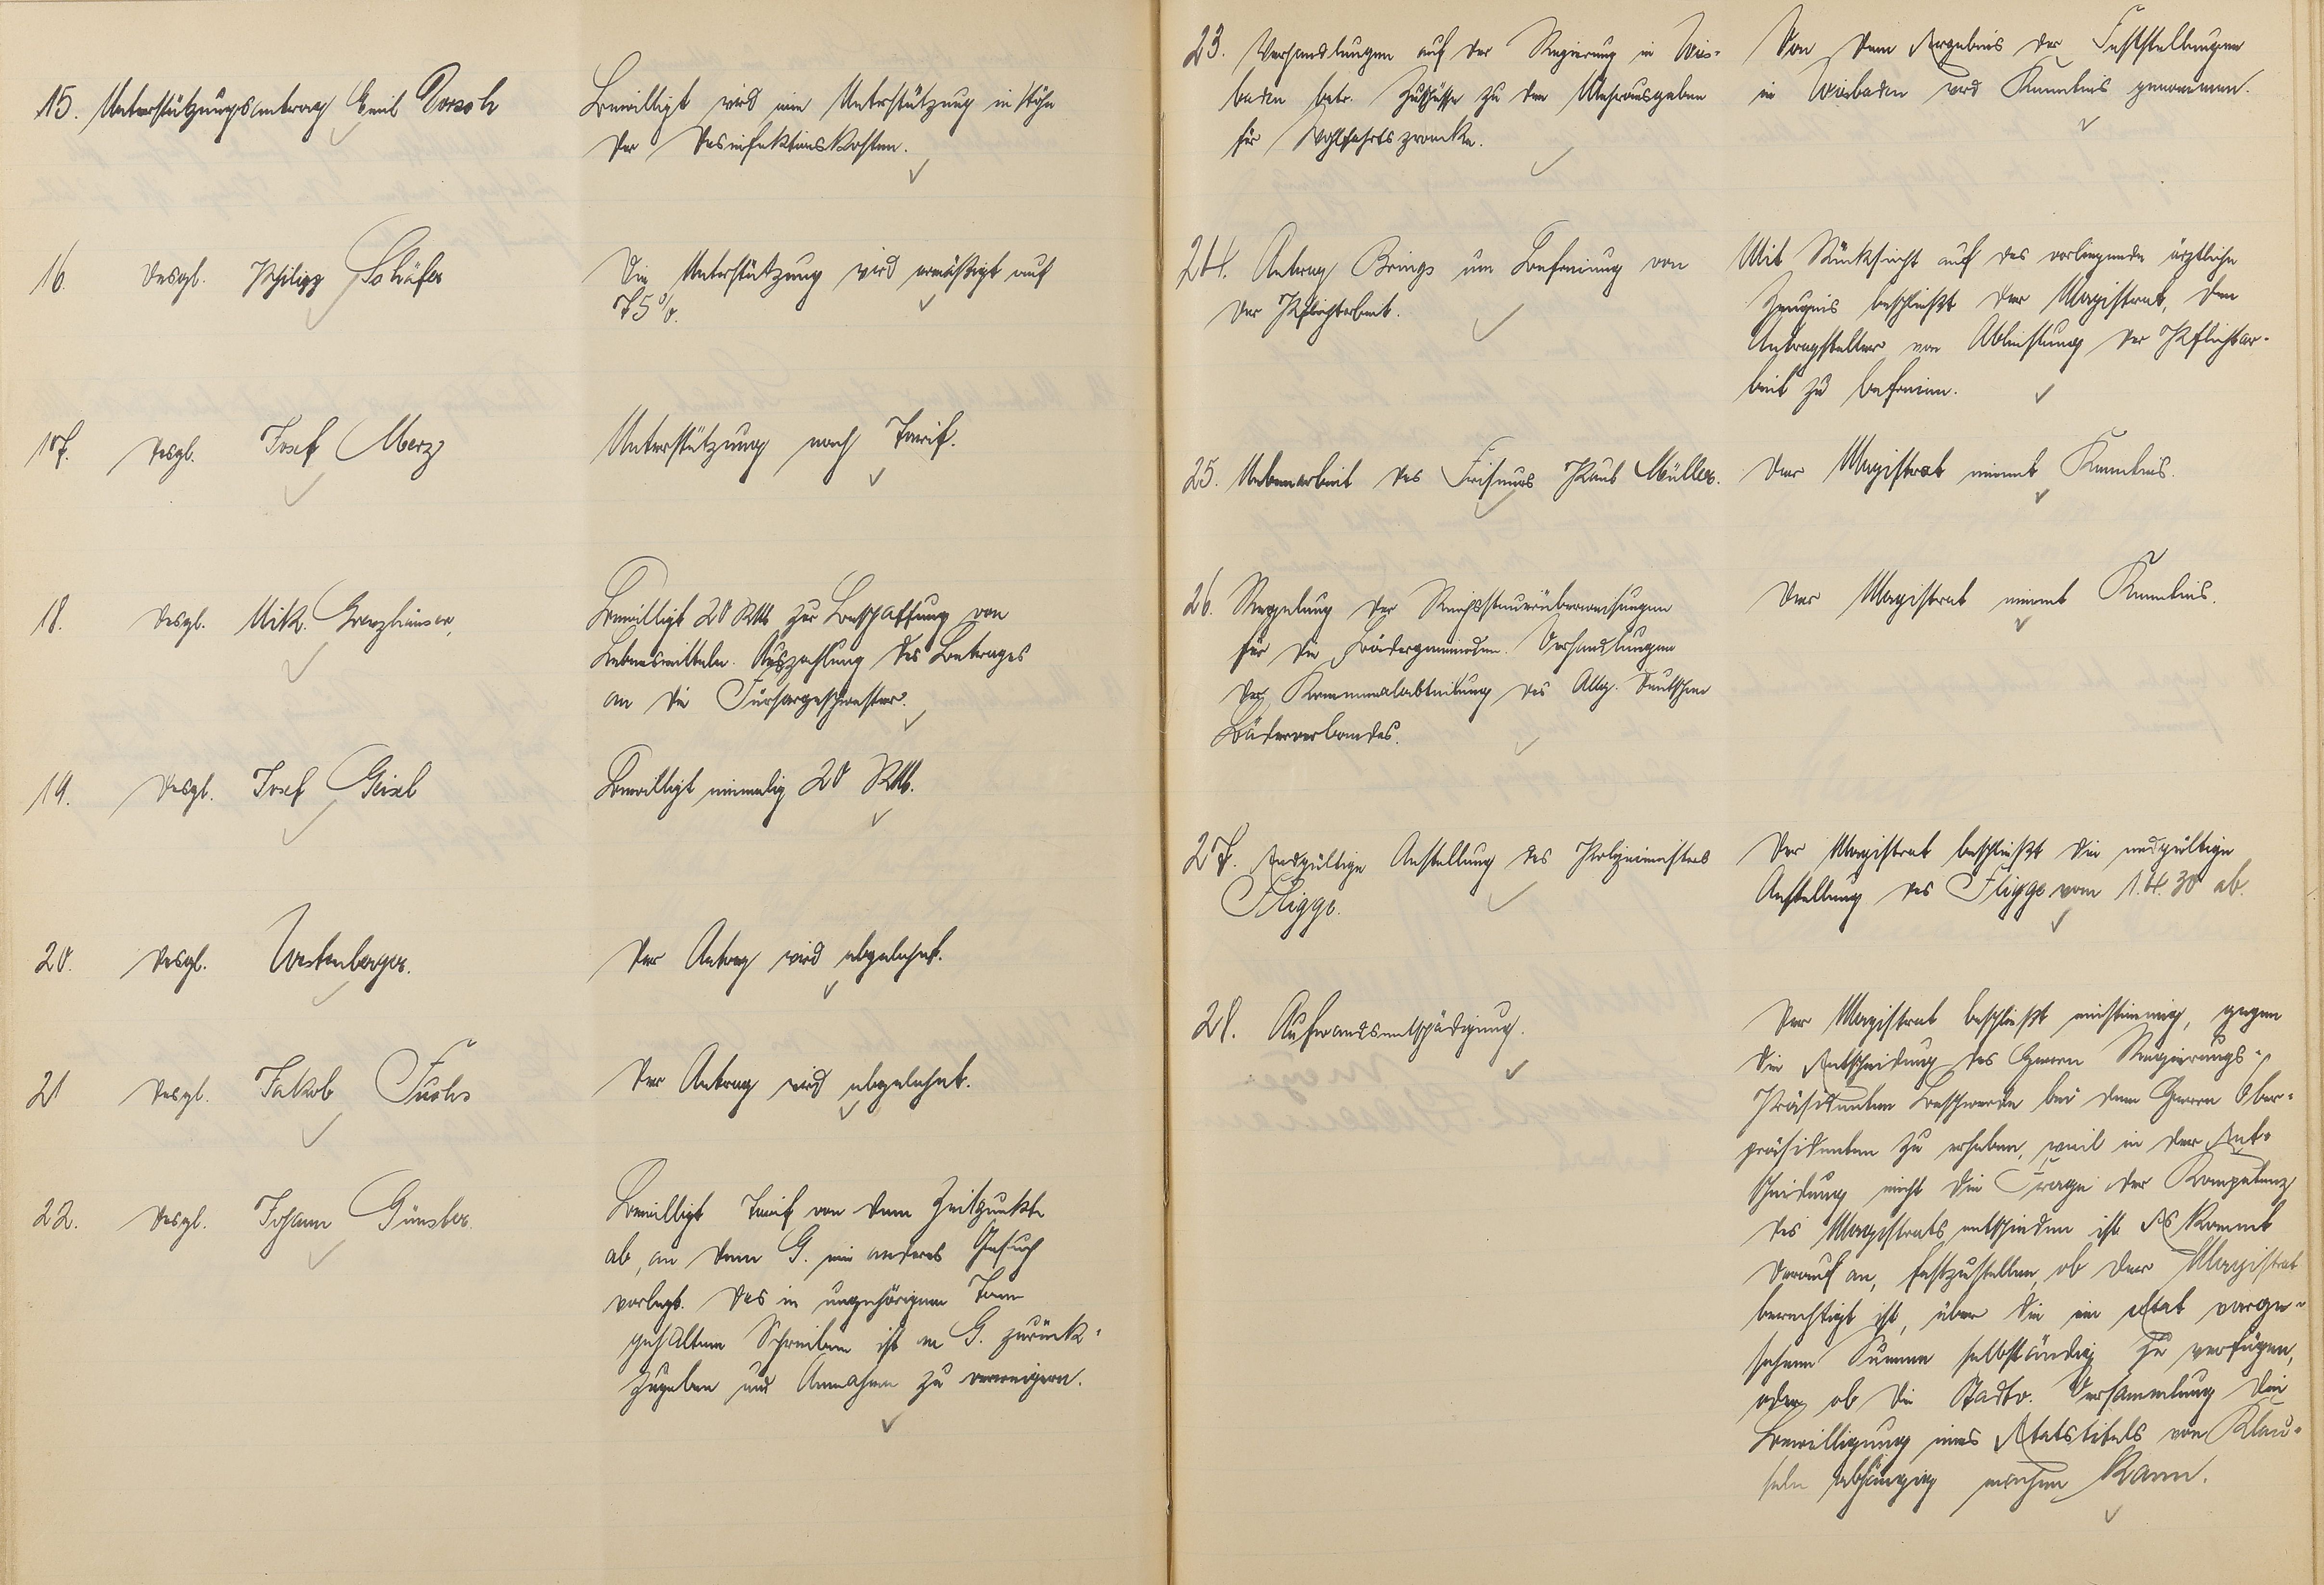 15. Unterstützungsantrag Emil Dorsch
Bewilligt wird eine Unterstützung in Höhe
der Desinfektionskosten.
16. Desgl. Philipp Schäfer
Die Unterstützung wird ermäßigt auf
75%.
17. Desgl. Josef Merz
Unterstützung nach Tarif.
18. Desgl. Nik.
Bewilligt 20 RM zur Beschaffung von
Lebensmitteln. Auszahlung des Betrages
an die Fürsorgeschwester.
19. Desgl. Josef Geisel
Bewilligt einmalig 20 RM.
20. Desgl. Westenberger.
Der Antrag wird abgelehnt.
21 Desgl. Jakob Fuchs
Der Antrag wird abgelehnt.
22. Desgl. Johann Günster.
Bewilligt Tarif von dem Zeitpunkte
ab, an dem G. ein anderes Gesuch
vorlegt. Das in ungehörigem Tone
gehaltene Schreiben ist an G. zurück-
zugeben und Annahme zu verweigern.
23. Verhandlungen auf der Regierung in Wies-
baden betr. Zuschüsse zu den Mehrausgaben
für Wohlfahrtszwecke.
Von dem Ergebnis der Feststellungen
in Wiesbaden wird Kenntnis genommen.
24. Antrag Brings um Befreiung von
der Pflichtarbeit.
Mit Rücksicht auf das vorliegende ärztliche
Zeugnis beschließt der Magistrat, den
Antragsteller von Ableistung der Pflichtar-
beit zu befreien.
25. Nebenarbeit des Friseurs Paul Müller.
Der Magistrat nimmt Kenntnis.
26. Regelung der Reichssteuerüberweisungen
für die Bädergemeinden. Verhandlungen
der Kommunalabteilung des Allg. Deutschen
Bäderverbandes.
Der Magistrat nimmt Kenntnis.
27. Endgültige Anstellung des Polizeimeisters
Fligge.
Der Magistrat beschließt die endgültige
Anstellung des Fligge vom 1.4.30 ab.
28. Aufwandsentschädigung.
Der Magistrat beschließt einstimmig, gegen
die Entscheidung des Herrn Regierungs-
Präsidenten Beschwerde bei dem Herrn Ober-
präsidenten zu erheben, weil in der Ent-
scheidung nicht die Frage der Kompetenz
des Magistrats entschieden ist. Es kommt
darauf an, festzustellen, ob der Magistrat
berechtigt ist, über die im Etat vorge-
sehene Summe selbständig zu verfügen,
oder ob die Stadtv. Versammlung die
Bewilligung eines Etatstitels von Klau-
seln abhängig machen kann.